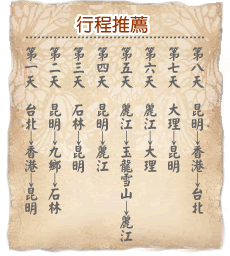 行程推薦
第一天 台北→香港→昆明
第二天 昆明→九鄉→石林
第三天 石林→昆明
第四天 昆明→麗江
第五天 麗江→玉龍雪山→麗江
第六天 麗江→大理
第七天 大理→昆明
第八天 昆明→香港→台北